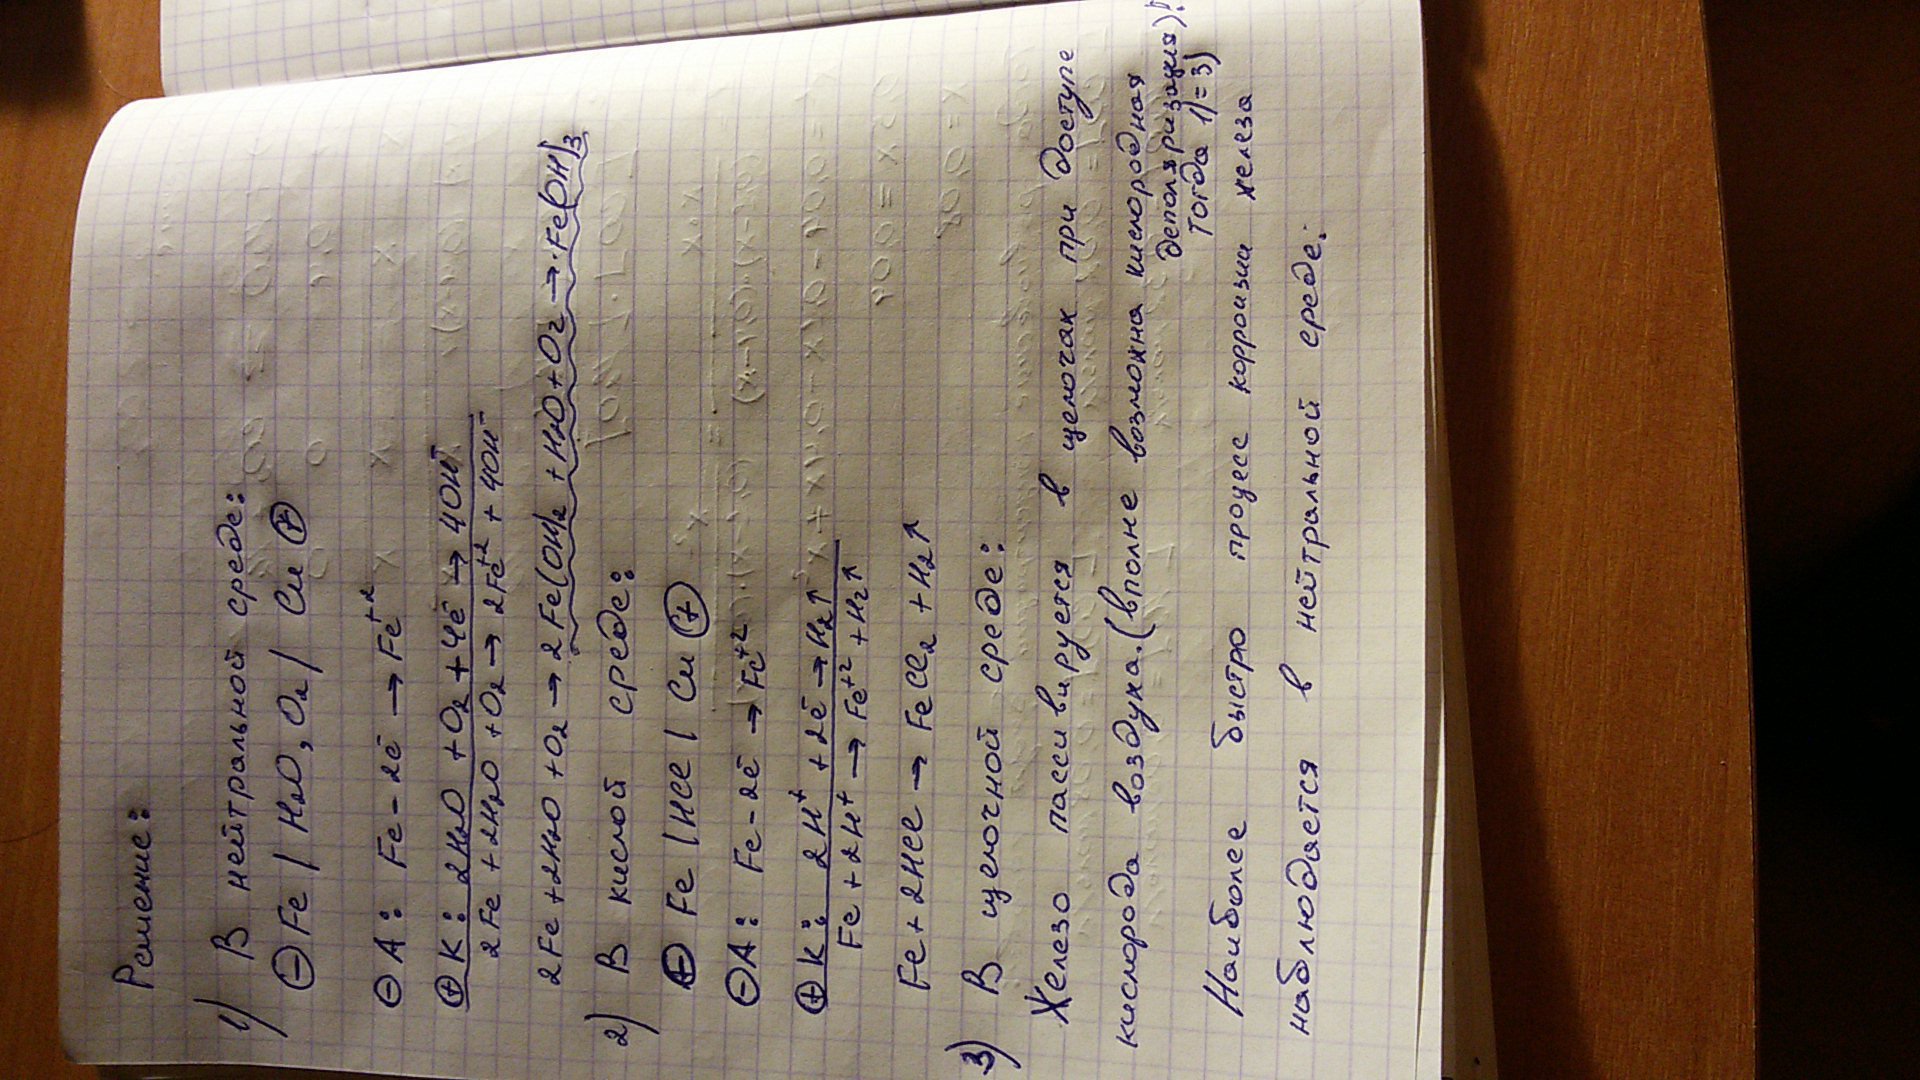 Решение:
1) В нейтральной среде:
⊖ Fe | H₂O, O₂ | Cu ⊕
⊖ A: Fe - 2ē → Fe⁺²
⊕ K: 2H₂O + O₂ + 4ē → 4OH⁻
2Fe + 2H₂O + O₂ → 2Fe⁺² + 4OH⁻
2Fe + 2H₂O + O₂ → 2Fe(OH)₂ + H₂O + O₂ → Fe(OH)₃
2) В кислой среде:
⊖ Fe | HCl | Cu ⊕
⊖ A: Fe - 2ē → Fe⁺²
⊕ K: 2H⁺ + 2ē → H₂↑
Fe + 2H⁺ → Fe⁺² + H₂↑
Fe + 2HCl → FeCl₂ + H₂↑
3) В щелочной среде:
Железо пассивируется в щелочах при доступе
кислорода воздуха. (вполне возможна кислородная
деполяризация)!
тогда 1) = 3)
Наиболее быстро процесс коррозии железа
наблюдается в нейтральной среде.